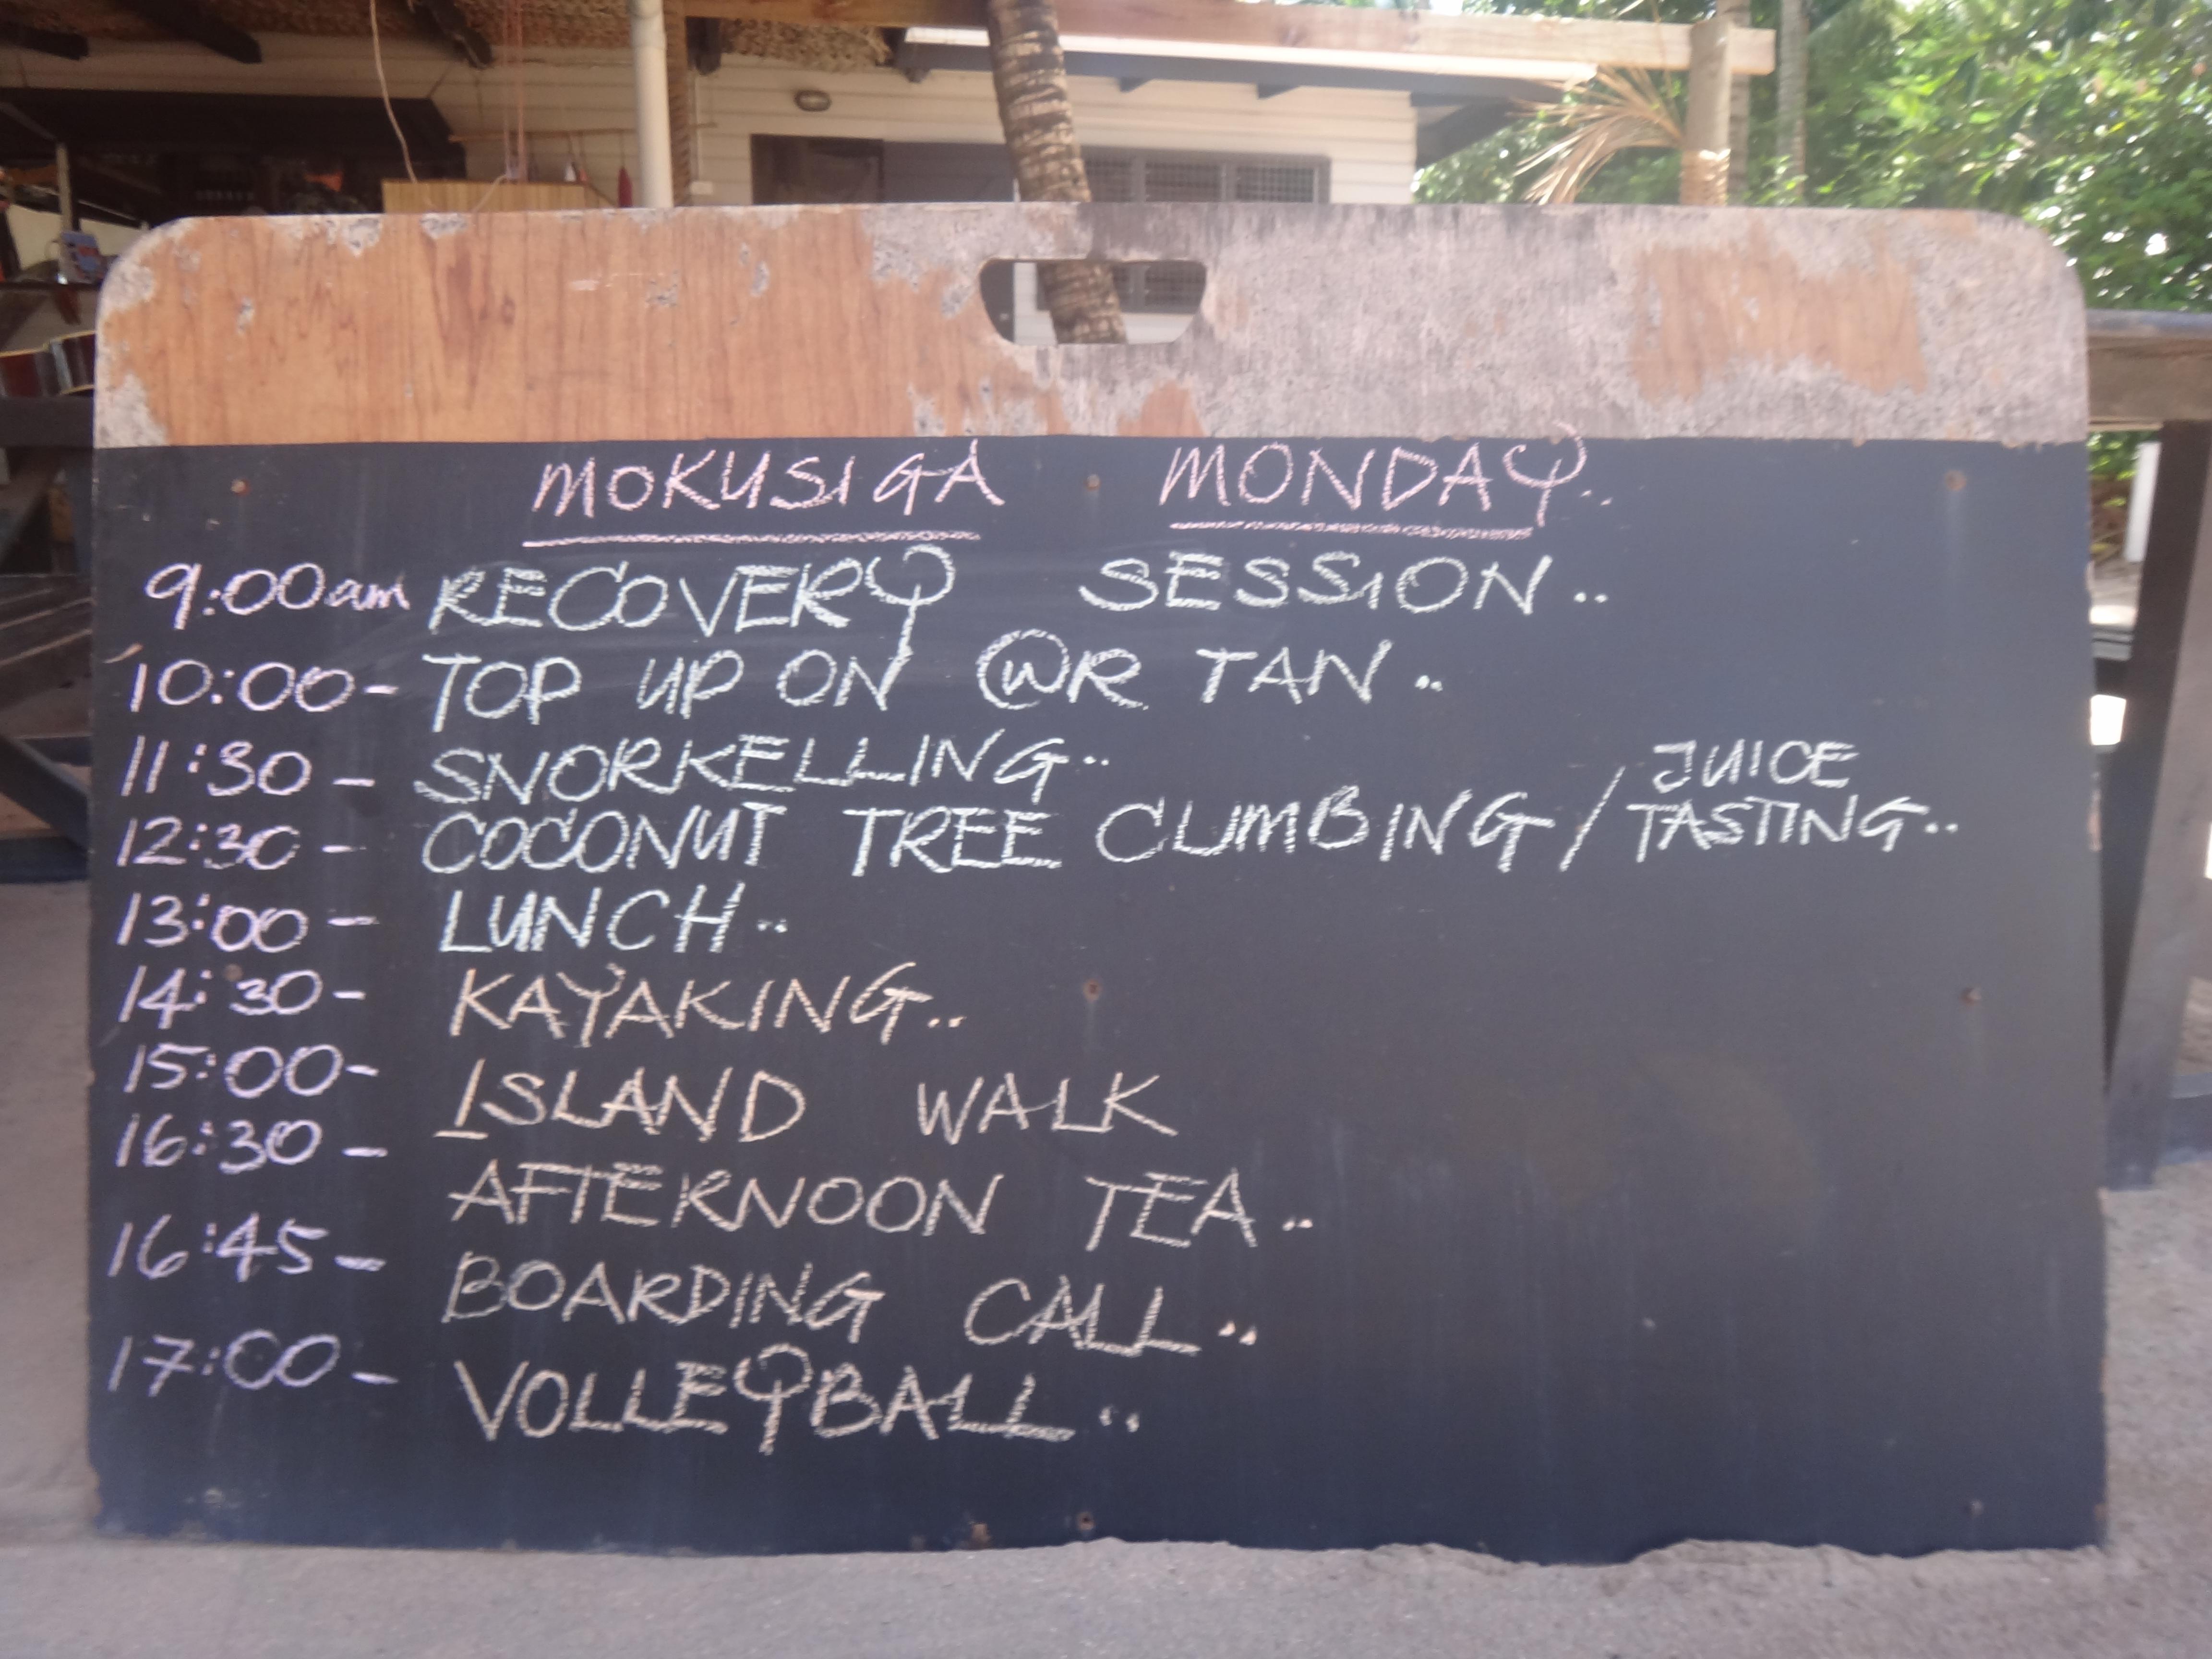 MOKUSIGA MONDAY..
9:00am RECOVERY SESSION..
10:00- TOP UP ON @WR TAN..
11:30 - SNORKELLING..
12:30 - COCONUT TREE CLIMBING / JUICE TASTING..
13:00 - LUNCH..
14:30 - KAYAKING..
15:00- ISLAND WALK
16:30 - AFTERNOON TEA..
16:45 - BOARDING CALL..
17:00 - VOLLEYBALL..